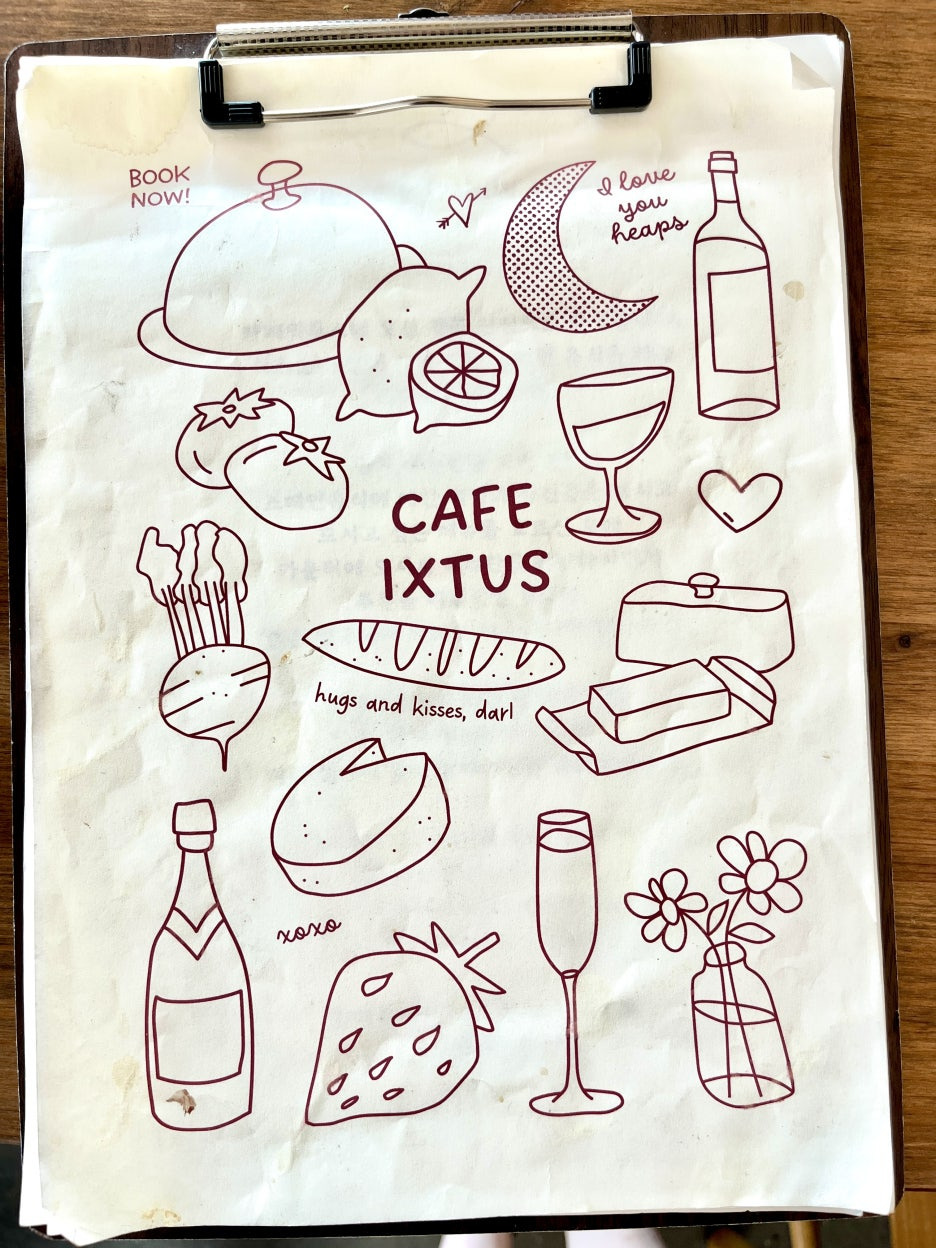 BOOK
NOW!
I love
you
heaps
CAFE
IXTUS
hugs and kisses, darl
xoxo